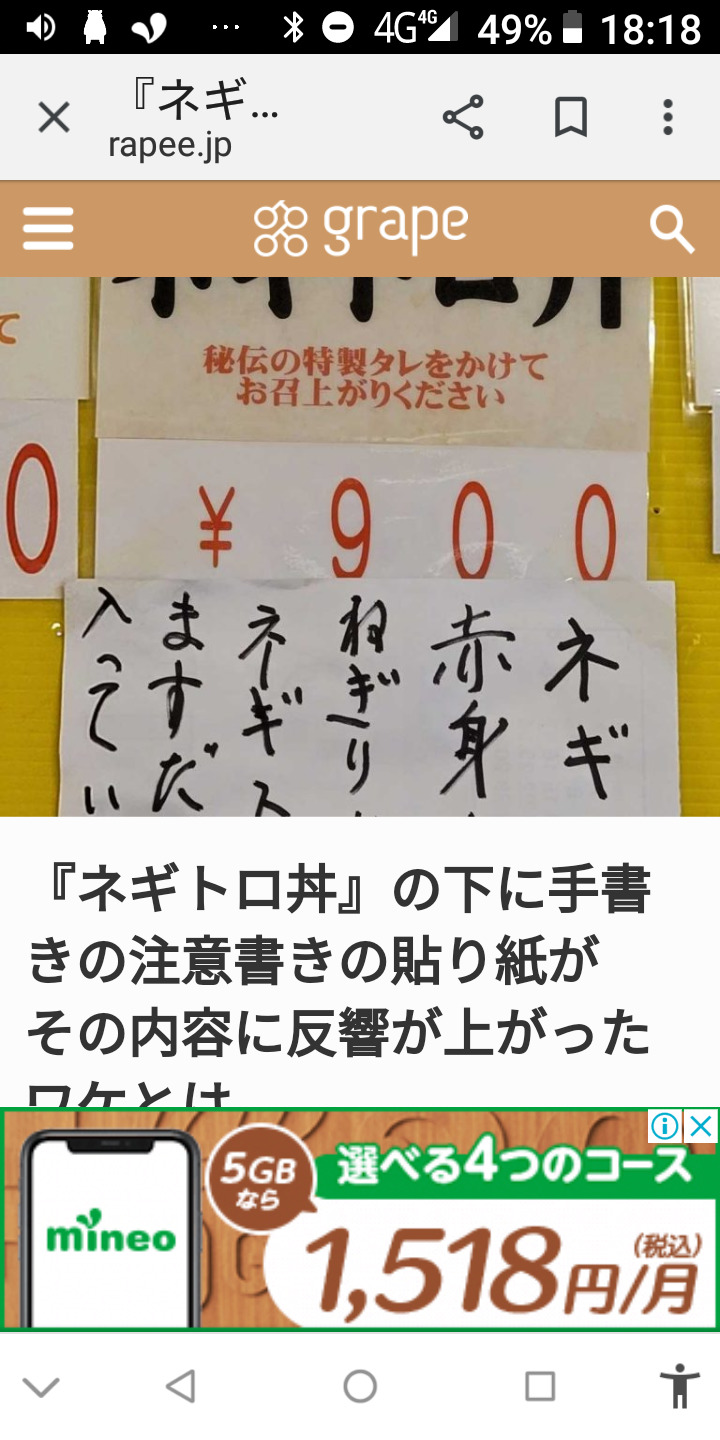 4G 4G 49% 18:18
『ネギ...
rapee.jp
grape
て
秘伝の特製タレをかけて
お召上がりください
0
¥900
ネギ
赤身
ねぎり
ネギ
ますだ
入ってい
『ネギトロ丼』の下に手書
きの注意書きの貼り紙が
その内容に反響が上がった
ワケとは
mineo
5GB
なら
選べる4つのコース
1,518円/月
(税込)